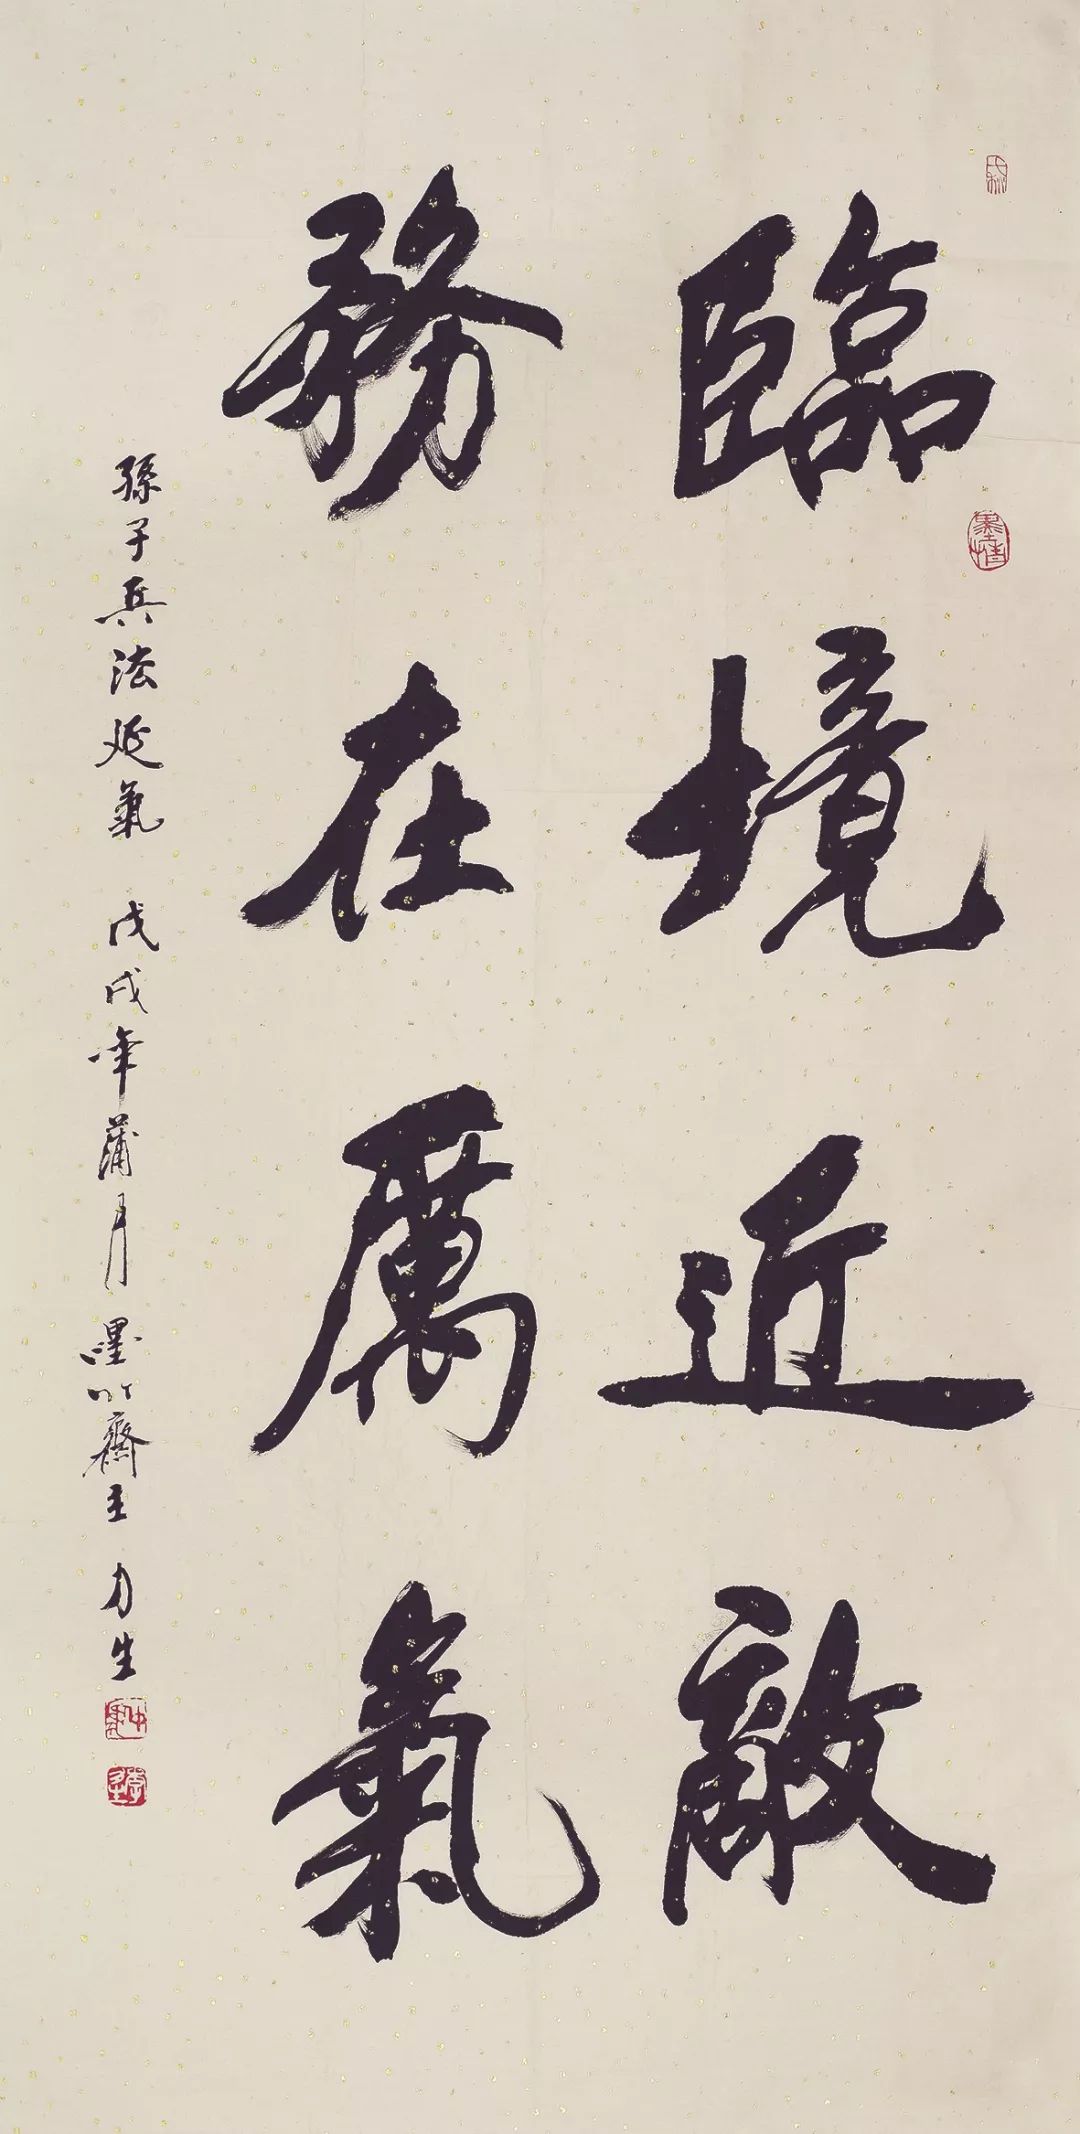 臨境近敵
務在厲氣
孫子兵法延氣 戊戌年蒲月 竹齋主 力生